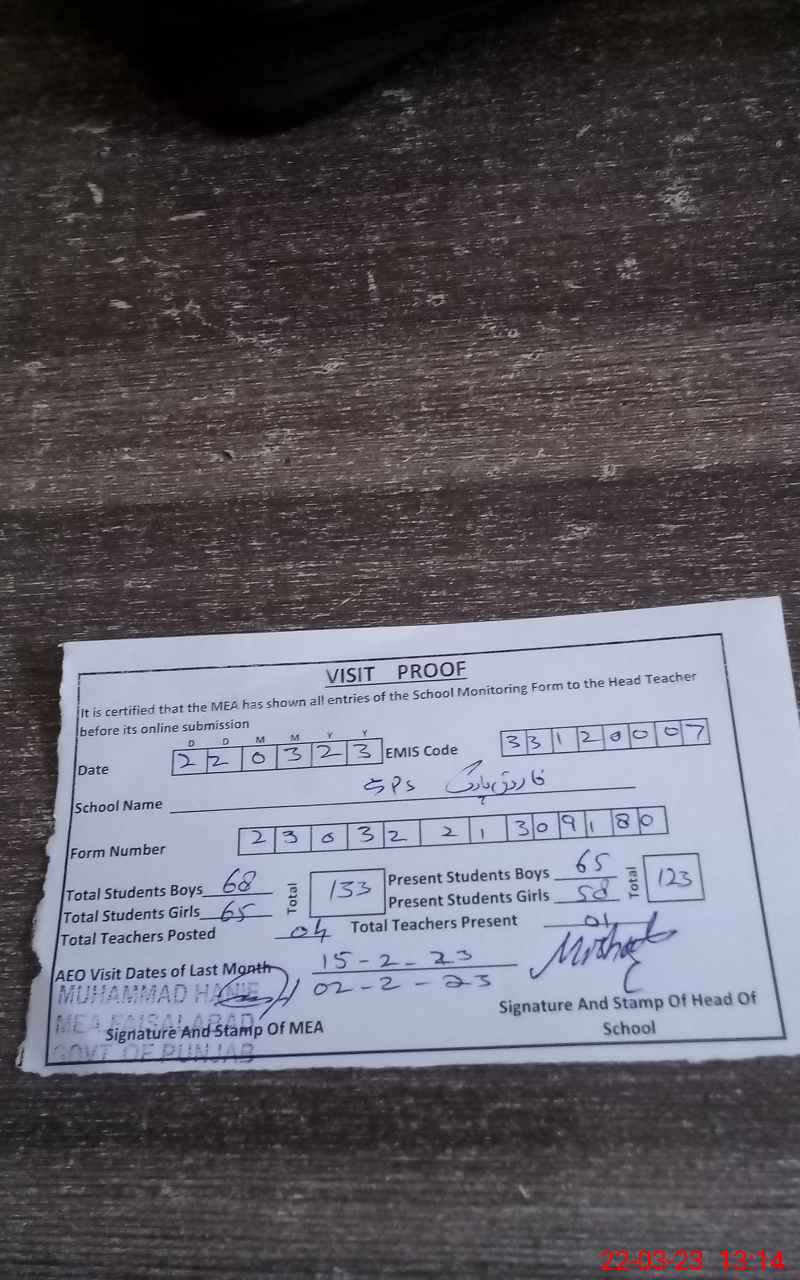 VISIT PROOF
It is certified that the MEA has shown all entries of the School Monitoring Form to the Head Teacher
before its online submission
D D M M Y Y
Date 2 2 0 3 2 3 EMIS Code 3 3 1 2 0 0 0 7
School Name GPS
Form Number 2 3 0 3 2 2 1 3 0 9 1 8 0
Total Students Boys 68 Total 133 Present Students Boys 65 Total 123
Total Students Girls 65 Present Students Girls 58
Total Teachers Posted 04 Total Teachers Present 01
AEO Visit Dates of Last Month 15-2-23
02-2-23
MUHAMMAD HANIF
MEA FAISALABAD
Signature And Stamp Of MEA
GOVT OF PUNJAB
Signature And Stamp Of Head Of
School
22-03-23 13:14